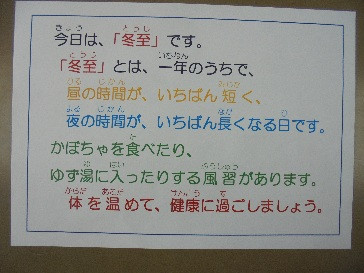 今日は、「冬至」です。
「冬至」とは、一年のうちで、
昼の時間が、いちばん短く、
夜の時間が、いちばん長くなる日です。
かぼちゃを食べたり、
ゆず湯に入ったりする風習があります。
体を温めて、健康に過ごしましょう。